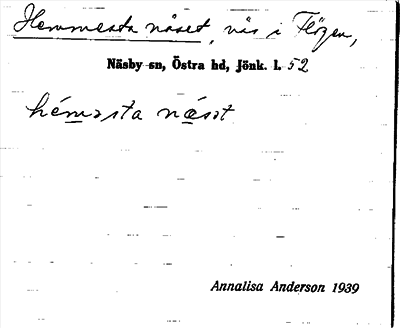 Hemmesta näset, näs i Flögen,
Näsby sn, Östra hd, Jönk. l. 52
héməsta næsət
Annalisa Anderson 1939